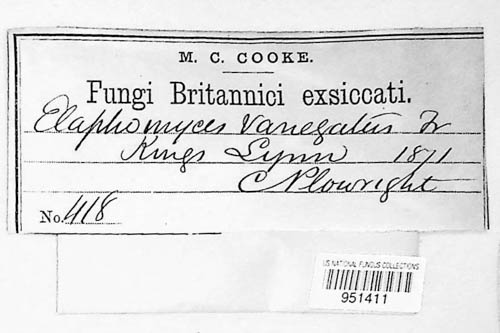 M. C. COOKE.
Fungi Britannici exsiccati.
Elaphomyces variegatus Fr
Kings Lynn 1871
C Plowright
No. 418
US NATIONAL FUNGUS COLLECTIONS
951411